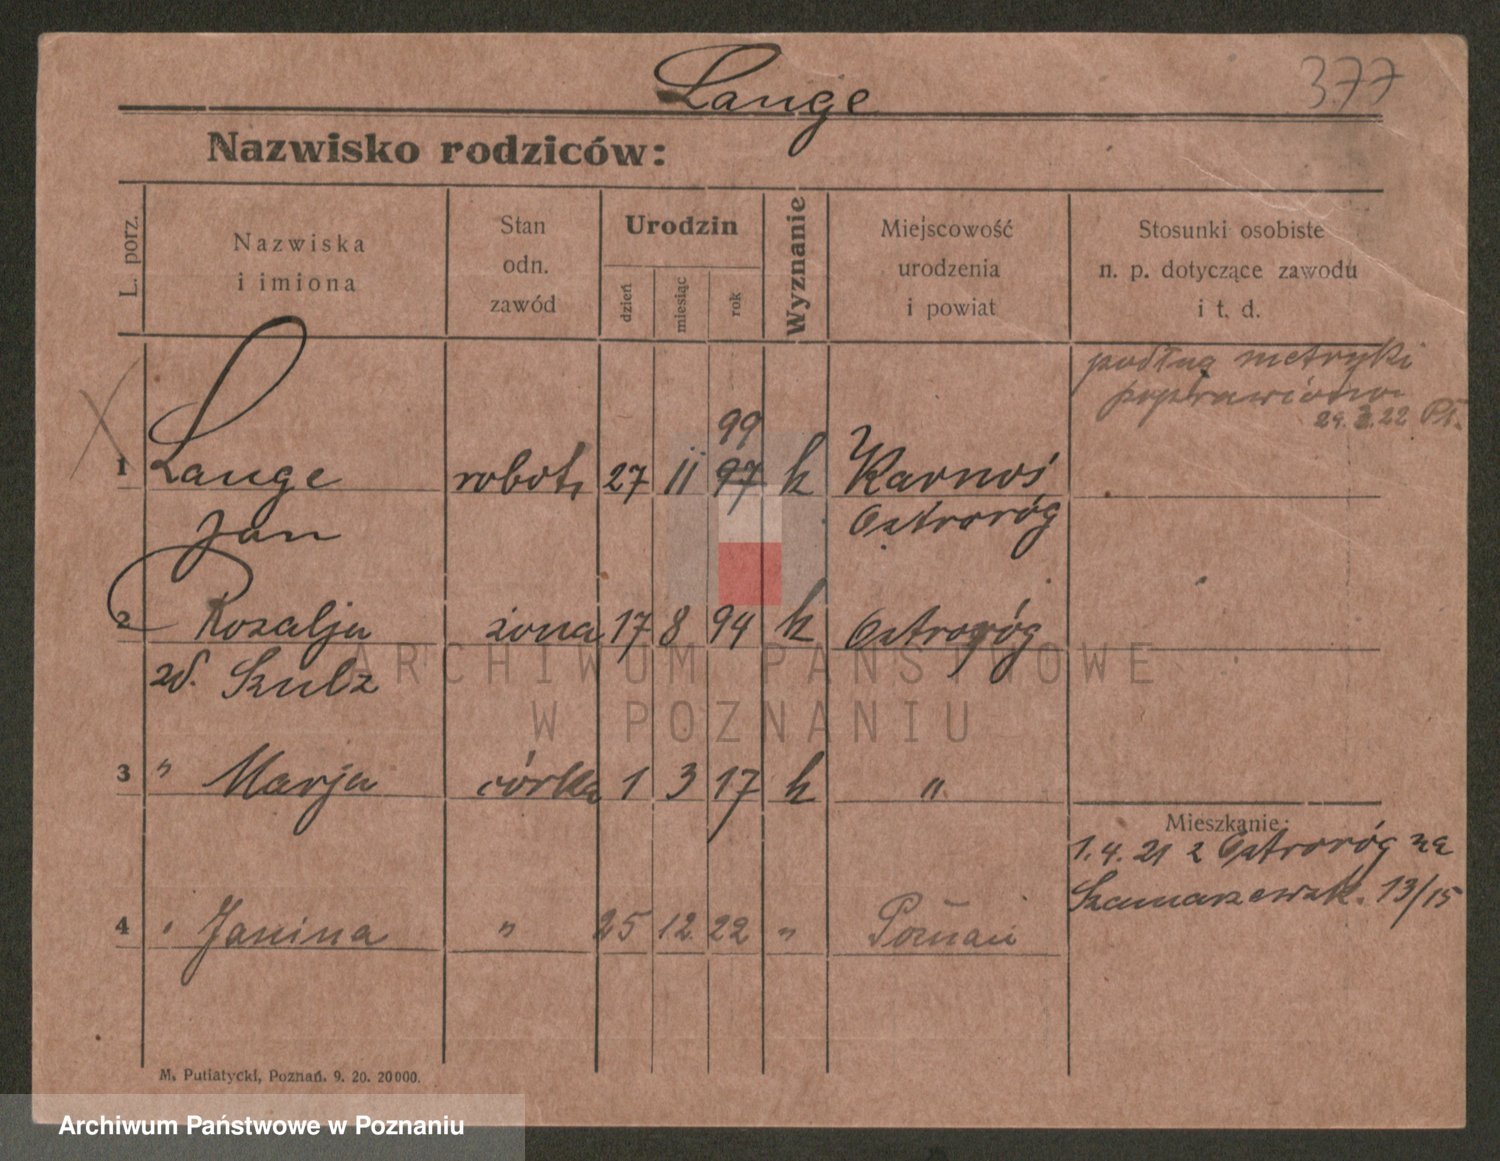 Lange
377
Nazwisko rodziców:
L. porz.
Nazwiska
i imiona
Stan
odn.
zawód
Urodzin
dzień
miesiąc
rok
Wyznanie
Miejscowość
urodzenia
i powiat
Stosunki osobiste
n. p. dotyczące zawodu
i t. d.
podług metryki
poprawiono
29. 3. 22
99
1 Lange robotn 27 11 97 k Karnoś
Jan Ostroróg
2 Rozalja żona 17 8 94 k Ostroróg
zd. Szulz
3 " Marja córka 1 3 17 k "
Mieszkanie:
1. 4. 21 z Ostroróg na
Szamarzewsk. 13/15
4 " Janina " 25 12 22 " Poznań
M. Putiatycki, Poznań. 9. 20. 20000.
ARCHIWUM PAŃSTWOWE
W POZNANIU
Archiwum Państwowe w Poznaniu